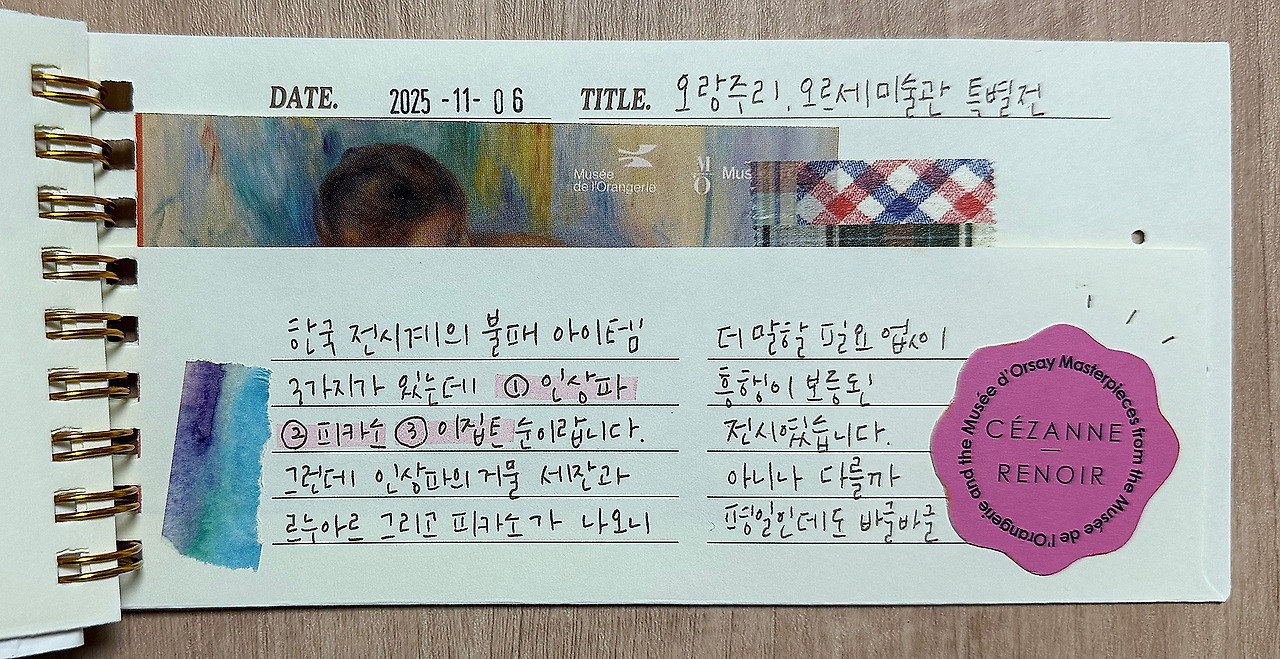 DATE. 2025-11-06 TITLE. 오랑주리, 오르세미술관 특별전
Musée
de l'Orangerie
M'O Mus
한국 전시계의 불패 아이템
3가지가 있는데 ① 인상파
② 피카소 ③ 이집트 순이랍니다.
그런데 인상파의 거물 세잔과
르누아르 그리고 피카소가 나오니
더 말할 필요 없이
흥행이 보증된
전시였습니다.
아니나 다를까
평일인데도 바글바글
CÉZANNE
RENOIR
Masterpieces from the Musée de l'Orangerie and the Musée d'Orsay